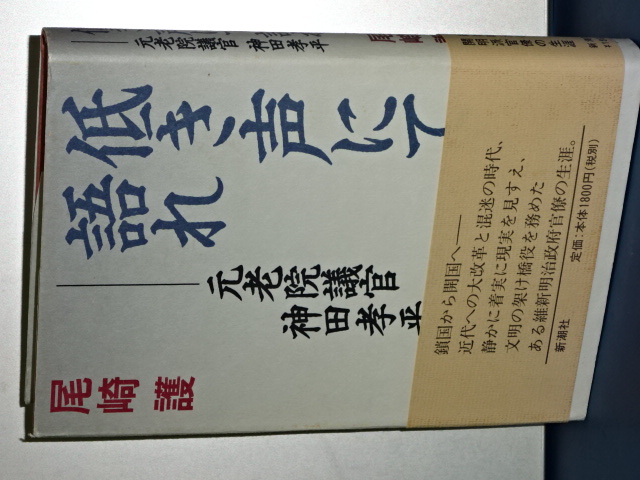 低き声にて
語れ
元老院議官
神田孝平
尾崎 護
鎖国から開国へ――
近代への大改革と混迷の時代、
静かに着実に現実を見すえ、
文明の架け橋役を務めた
ある維新明治政府官僚の生涯。
定価:本体1800円(税別)
新潮社
元老院議官 神田孝平